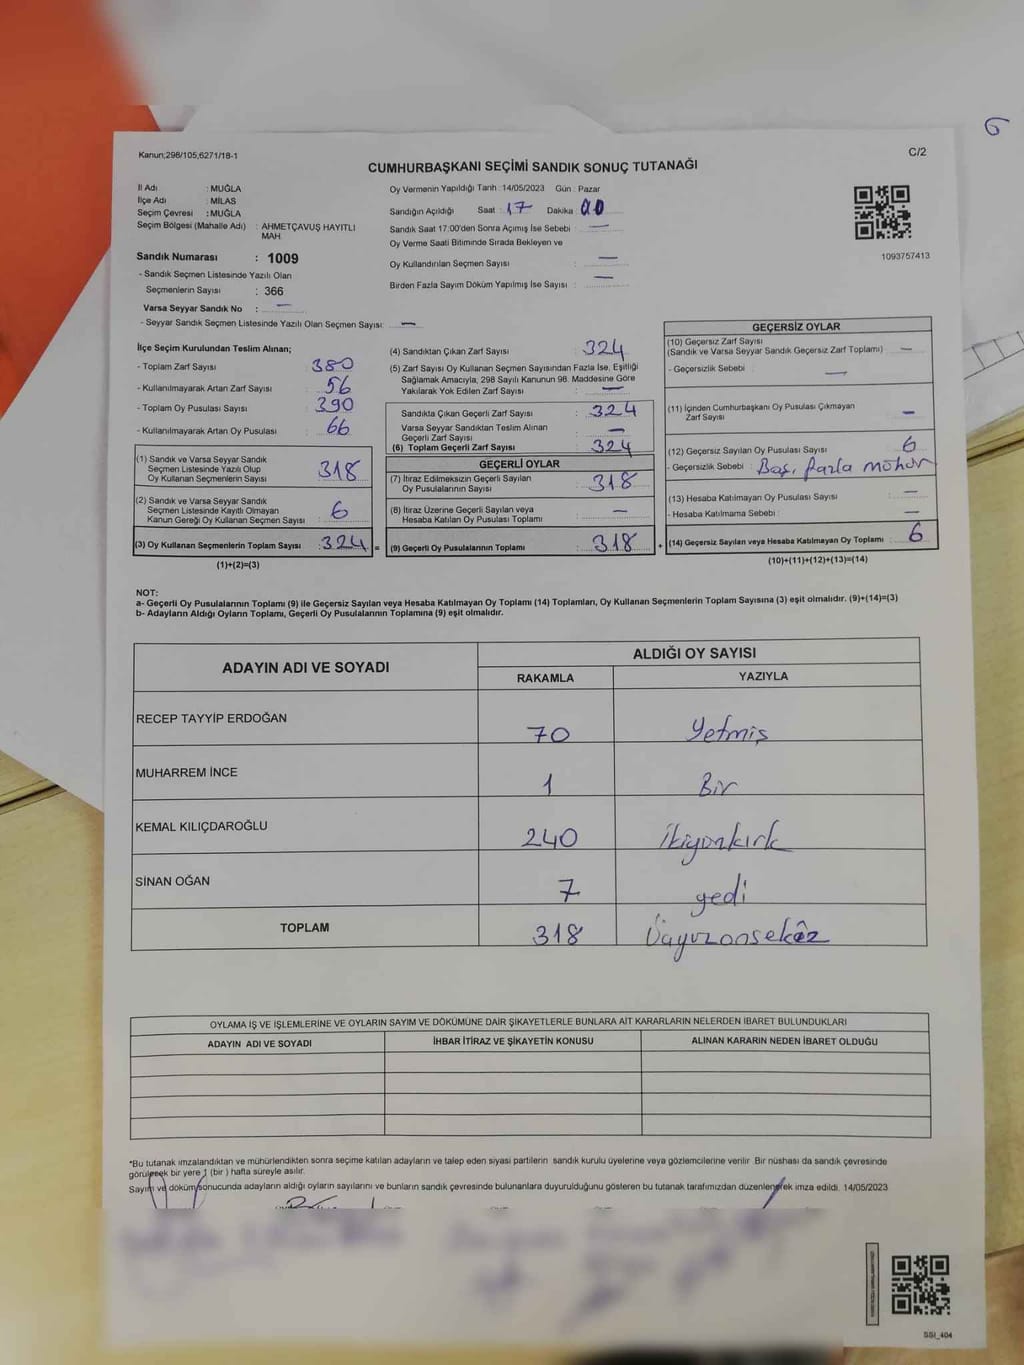 Kanun;298/105,6271/18-1
C/2
CUMHURBAŞKANI SEÇİMİ SANDIK SONUÇ TUTANAĞI
İl Adı : MUĞLA
İlçe Adı : MİLAS
Seçim Çevresi : MUĞLA
Seçim Bölgesi (Mahalle Adı) : AHMETÇAVUŞ HAYITLI
MAH
Sandık Numarası : 1009
- Sandık Seçmen Listesinde Yazılı Olan
Seçmenlerin Sayısı : 366
Varsa Seyyar Sandık No : —
- Seyyar Sandık Seçmen Listesinde Yazılı Olan Seçmen Sayısı: —
Oy Vermenin Yapıldığı Tarih : 14/05/2023 Gün : Pazar
Sandığın Açıldığı Saat : 17 Dakika : 00
Sandık Saat 17:00'den Sonra Açımış İse Sebebi : —
Oy Verme Saati Bitiminde Sırada Bekleyen ve
Oy Kullandırılan Seçmen Sayısı : —
Birden Fazla Sayım Döküm Yapılmış İse Sayısı : —
1093757413
6
İlçe Seçim Kurulundan Teslim Alınan;
- Toplam Zarf Sayısı : 380
- Kullanılmayarak Artan Zarf Sayısı : 56
- Toplam Oy Pusulası Sayısı : 390
- Kullanılmayarak Artan Oy Pusulası : 66
(1) Sandık ve Varsa Seyyar Sandık
Seçmen Listesinde Yazılı Olup
Oy Kullanan Seçmenlerin Sayısı : 318
(2) Sandık ve Varsa Seyyar Sandık
Seçmen Listesinde Kayıtlı Olmayan
Kanun Gereği Oy Kullanan Seçmen Sayısı : 6
(3) Oy Kullanan Seçmenlerin Toplam Sayısı : 324 =
(1)+(2)=(3)
(4) Sandıktan Çıkan Zarf Sayısı : 324
(5) Zarf Sayısı Oy Kullanan Seçmen Sayısından Fazla İse, Eşitliği
Sağlamak Amacıyla, 298 Sayılı Kanunun 98. Maddesine Göre
Yakılarak Yok Edilen Zarf Sayısı : —
Sandıkta Çıkan Geçerli Zarf Sayısı : 324
Varsa Seyyar Sandıktan Teslim Alınan
Geçerli Zarf Sayısı : —
(6) Toplam Geçerli Zarf Sayısı : 324
GEÇERLİ OYLAR
(7) İtiraz Edilmeksizin Geçerli Sayılan
Oy Pusulalarının Sayısı : 318
(8) İtiraz Üzerine Geçerli Sayılan veya
Hesaba Katılan Oy Pusulası Toplamı : —
(9) Geçerli Oy Pusulalarının Toplamı : 318 +
GEÇERSİZ OYLAR
(10) Geçersiz Zarf Sayısı
(Sandık ve Varsa Seyyar Sandık Geçersiz Zarf Toplamı) : —
- Geçersizlik Sebebi : —
(11) İçinden Cumhurbaşkanı Oy Pusulası Çıkmayan
Zarf Sayısı : —
(12) Geçersiz Sayılan Oy Pusulası Sayısı : 6
- Geçersizlik Sebebi : Boş, fazla mühür
(13) Hesaba Katılmayan Oy Pusulası Sayısı : —
- Hesaba Katılmama Sebebi : —
(14) Geçersiz Sayılan veya Hesaba Katılmayan Oy Toplamı : 6
(10)+(11)+(12)+(13)=(14)
NOT:
a- Geçerli Oy Pusulalarının Toplamı (9) ile Geçersiz Sayılan veya Hesaba Katılmayan Oy Toplamı (14) Toplamları, Oy Kullanan Seçmenlerin Toplam Sayısına (3) eşit olmalıdır. (9)+(14)=(3)
b- Adayların Aldığı Oyların Toplamı, Geçerli Oy Pusulalarının Toplamına (9) eşit olmalıdır.
ADAYIN ADI VE SOYADI
ALDIĞI OY SAYISI
RAKAMLA YAZIYLA
RECEP TAYYİP ERDOĞAN 70 Yetmiş
MUHARREM İNCE 1 Bir
KEMAL KILIÇDAROĞLU 240 İkiyüzkırk
SİNAN OĞAN 7 yedi
TOPLAM 318 Üçyüzonsekiz
OYLAMA İŞ VE İŞLEMLERİNE VE OYLARIN SAYIM VE DÖKÜMÜNE DAİR ŞİKAYETLERLE BUNLARA AİT KARARLARIN NELERDEN İBARET BULUNDUKLARI
ADAYIN ADI VE SOYADI İHBAR İTİRAZ VE ŞİKAYETİN KONUSU ALINAN KARARIN NEDEN İBARET OLDUĞU
*Bu tutanak imzalandıktan ve mühürlendikten sonra seçime katılan adayların ve talep eden siyasi partilerin sandık kurulu üyelerine veya gözlemcilerine verilir. Bir nüshası da sandık çevresinde
görülecek bir yere 1 (bir) hafta süreyle asılır.
Sayım ve döküm sonucunda adayların aldığı oyların sayılarını ve bunların sandık çevresinde bulunanlara duyurulduğunu gösteren bu tutanak tarafımızdan düzenlenerek imza edildi. 14/05/2023
SSI_404